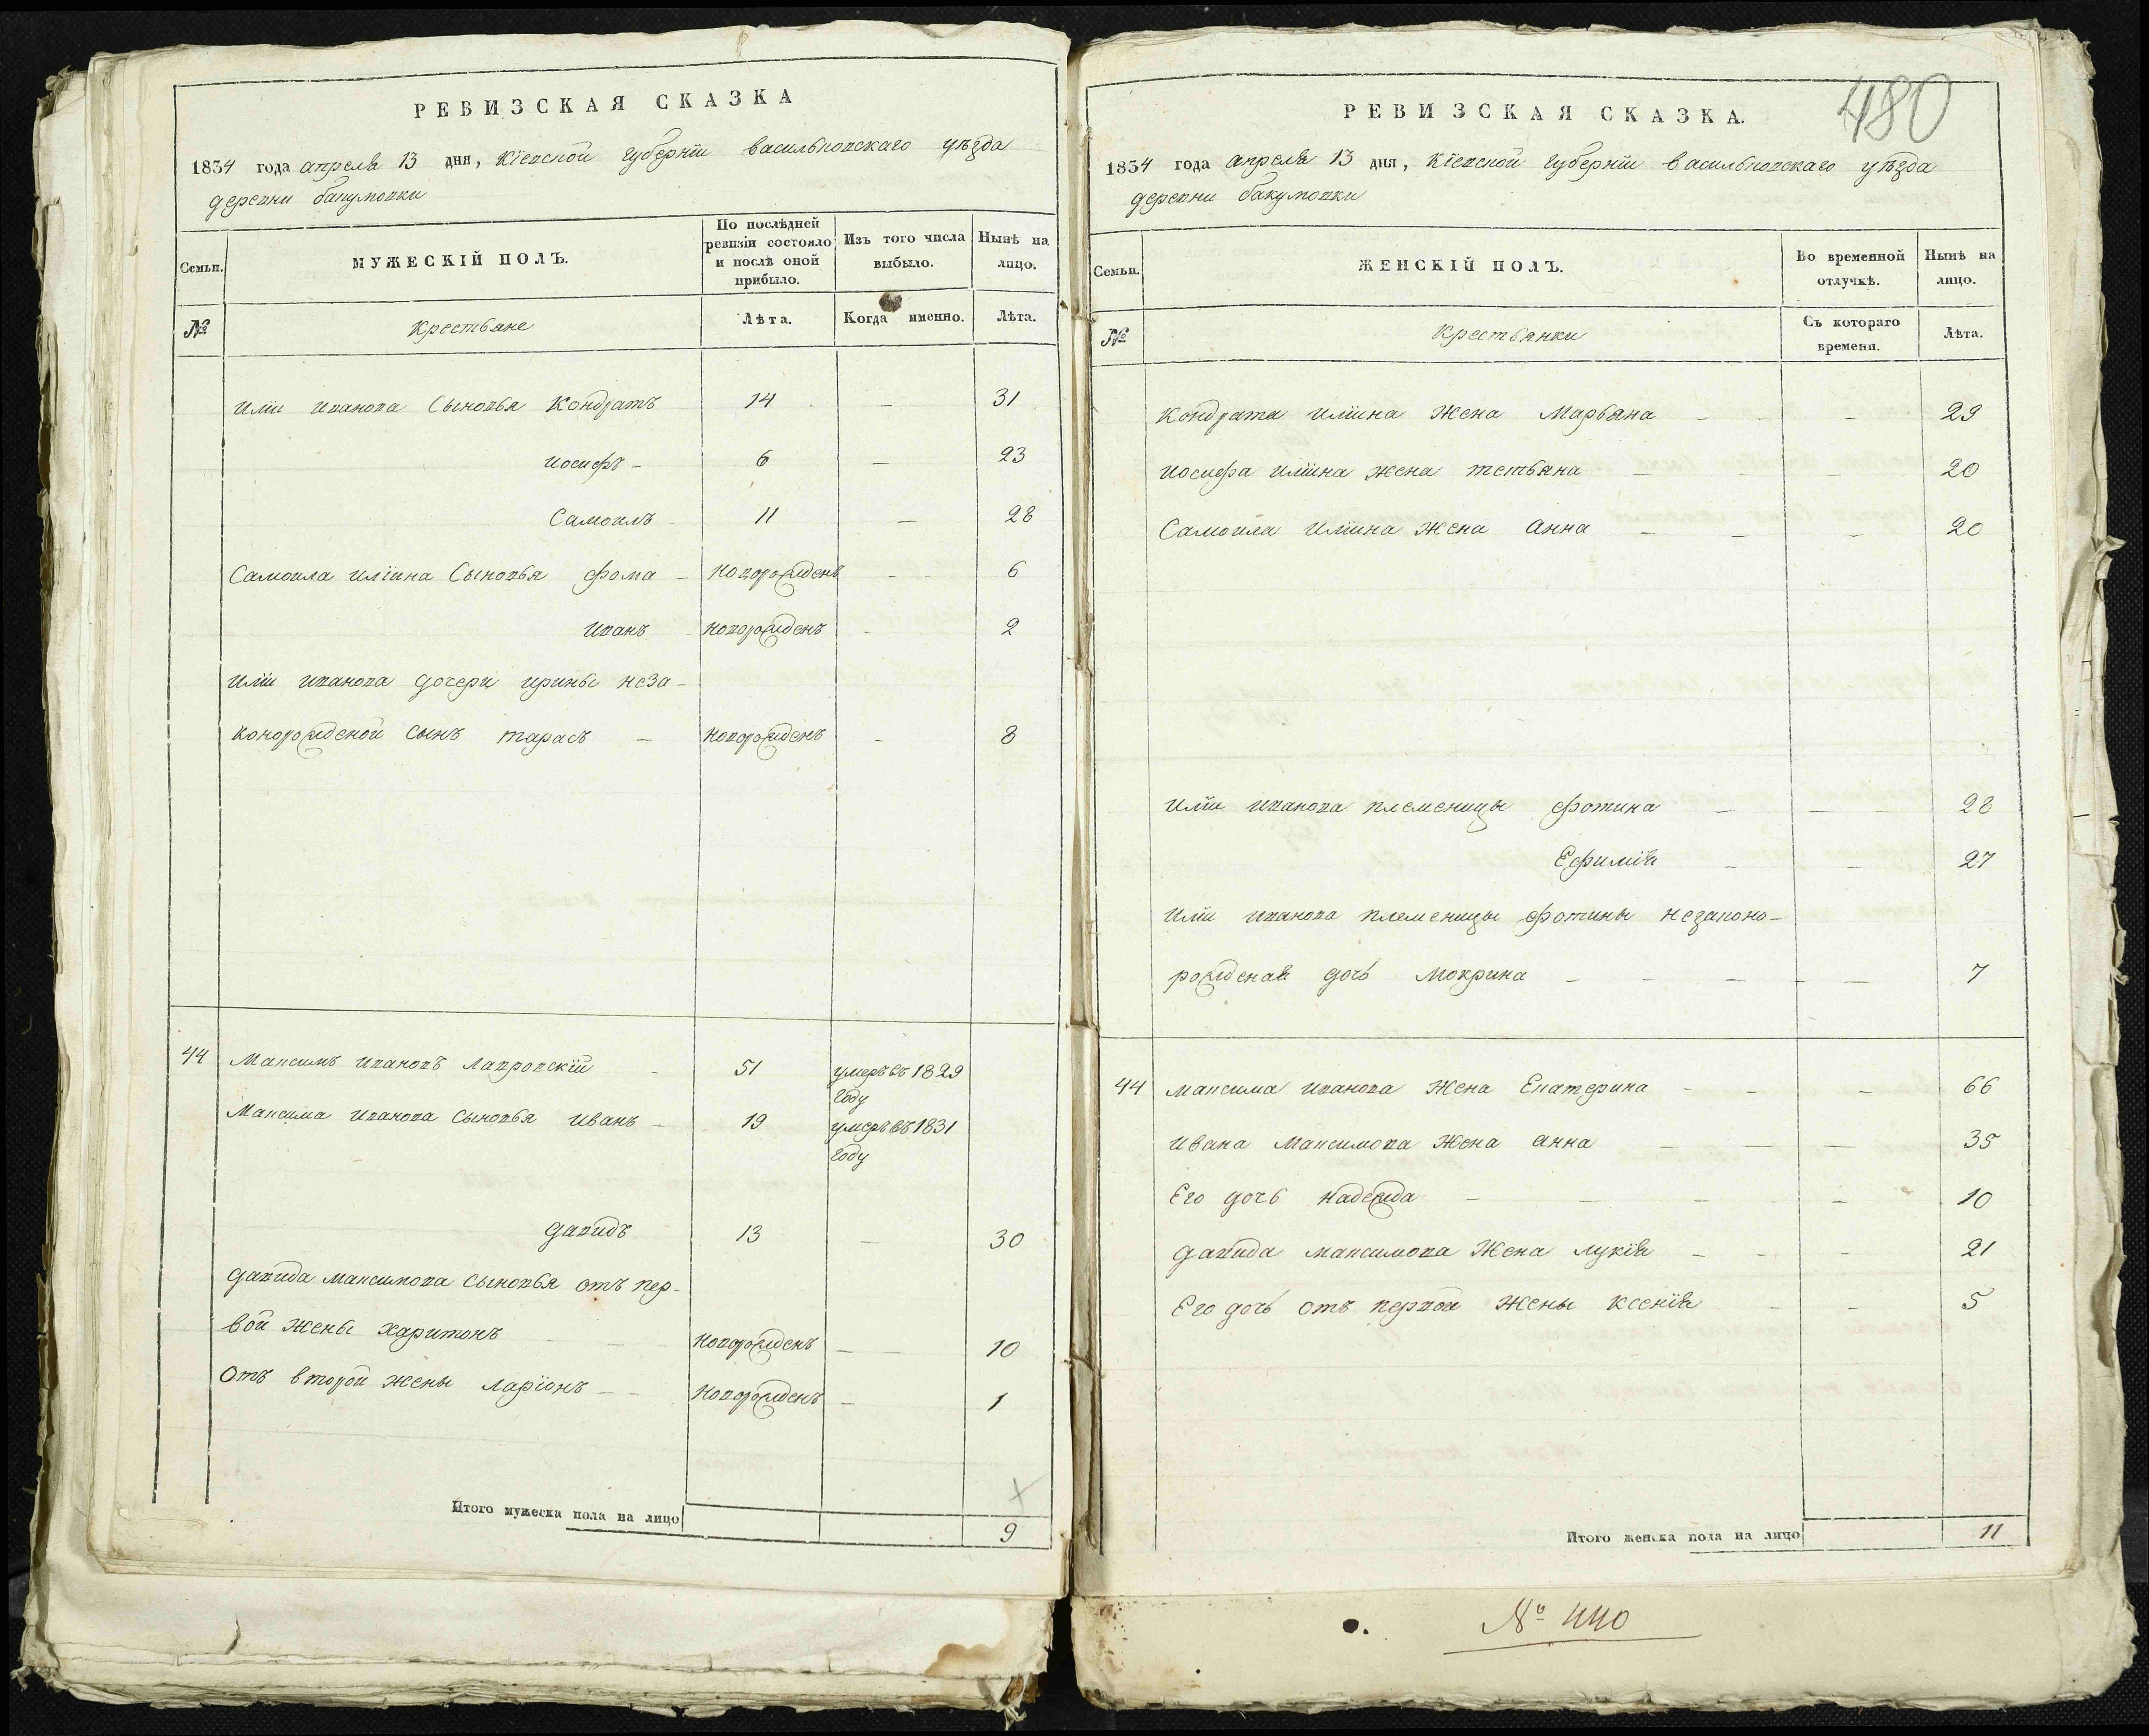 РЕВИЗСКАЯ СКАЗКА
1834 года апреля 13 дня, Кіевской губерніи васильковскаго уѣзда
деревни бакумовки
Семьи.
МУЖЕСКІЙ ПОЛЪ.
По послѣдней ревизіи состояло и послѣ оной прибыло.
Изъ того числа выбыло.
Нынѣ на лицо.
№
Крестьяне
Лѣта.
Когда именно.
Лѣта.
Иліи иванова сыновья Кондратъ 14 — 31
иосифъ — 6 — 23
Самоилъ 11 — 28
Самоила иліина сыновья фома — новорожденъ — 6
иванъ новорожденъ — 2
Иліи иванова дочери ирины неза-
конорожденой сынъ тарасъ — новорожденъ — 8
44 Максимъ ивановъ лавровскій 51 умеръ въ 1829
году
Максима иванова сыновья иванъ — 19 умеръ въ 1831
году
давидъ 13 — 30
давида максимова сыновья отъ пер-
вой жены харитонъ новорожденъ — 10
отъ второй жены ларіонъ — новорожденъ — 1
Итого мужеска пола на лицо 9
480
РЕВИЗСКАЯ СКАЗКА.
1834 года апреля 13 дня, Кіевской губерніи васильковскаго уѣзда
деревни бакумовки
Семьи.
ЖЕНСКІЙ ПОЛЪ.
Во временной отлучкѣ.
Нынѣ на лицо.
№
Крестьянки
Съ котораго времени.
Лѣта.
Кондрата иліина жена Марьяна — — 29
иосифа иліина жена тетьяна — 20
Самоила иліина жена анна — — — 20
Иліи иванова племеницы фотина — — 28
Ефимія — — 27
Иліи иванова племеницы фотины незаконо-
рожденая дочь Мокрина — — — — 7
44 максима иванова жена Екатерина — — — 66
ивана максимова жена анна — — — 35
Его дочь надежда — — — — 10
давида максимова жена лукія — — — 21
Его дочь отъ первой жены ксенія — — 5
Итого женска пола на лицо 11
№ 440